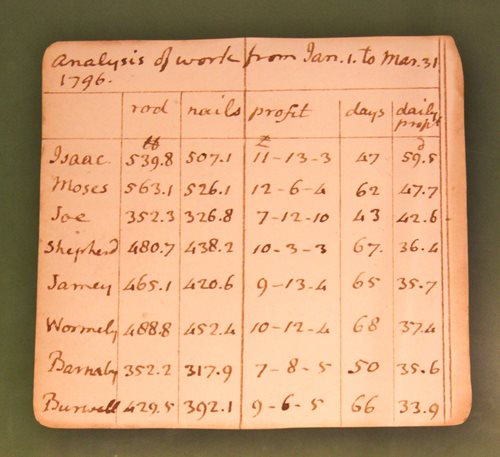 Analysis of work from Jan. 1. to Mar. 31
1796.
rod nails profit days daily profit
lb £ d
Isaac 539.8 507.1 11-13-3 47 59.5
Moses 563.1 526.1 12-6-4 62 47.7
Joe 352.3 326.8 7-12-10 43 42.6
Shepherd 480.7 438.2 10-3-3 67. 36.4
Jamey 465.1 420.6 9-13-4 65 35.7
Wormely 488.8 452.4 10-12-4 68 37.4
Barnaby 352.2 317.9 7-8-5 50 35.6
Burwell 429.5 392.1 9-6-5 66 33.9